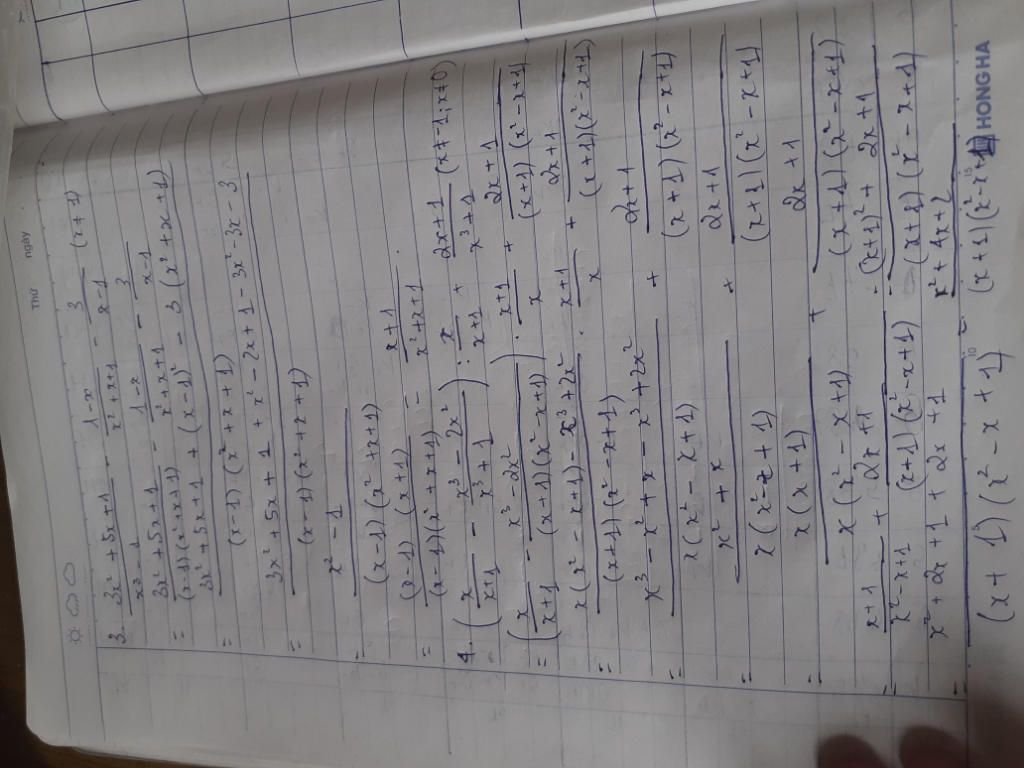 Thứ ngày
3. (3x² + 5x + 1)/(x³ - 1) - (1 - x)/(x² + x + 1) - 3/(x - 1) (x ≠ 1)
= (3x² + 5x + 1)/((x - 1)(x² + x + 1)) - (1 - x)/(x² + x + 1) - 3/(x - 1)
= (3x² + 5x + 1 + (x - 1)² - 3(x² + x + 1))/((x - 1)(x² + x + 1))
= (3x² + 5x + 1 + x² - 2x + 1 - 3x² - 3x - 3)/((x - 1)(x² + x + 1))
= (x² - 1)/((x - 1)(x² + x + 1))
= ((x - 1)(x + 1))/((x - 1)(x² + x + 1)) = (x + 1)/(x² + x + 1).
4. (x/(x + 1) - (x³ - 2x²)/(x³ + 1)) : x/(x + 1) + (2x + 1)/(x³ + 1) (x ≠ -1; x ≠ 0)
= (x/(x + 1) - (x³ - 2x²)/((x + 1)(x² - x + 1))) . (x + 1)/x + (2x + 1)/((x + 1)(x² - x + 1))
= (x(x² - x + 1) - x³ + 2x²)/((x + 1)(x² - x + 1)) . (x + 1)/x + (2x + 1)/((x + 1)(x² - x + 1))
= (x³ - x² + x - x³ + 2x²)/(x(x² - x + 1)) + (2x + 1)/((x + 1)(x² - x + 1))
= (x² + x)/(x(x² - x + 1)) + (2x + 1)/((x + 1)(x² - x + 1))
= (x(x + 1))/(x(x² - x + 1)) + (2x + 1)/((x + 1)(x² - x + 1))
= (x + 1)/(x² - x + 1) + (2x + 1)/((x + 1)(x² - x + 1)) = ((x + 1)² + 2x + 1)/((x + 1)(x² - x + 1))
= (x² + 2x + 1 + 2x + 1)/((x + 1)(x² - x + 1)) = (x² + 4x + 2)/((x + 1)(x² - x + 1))
5 10 15 HONGHA